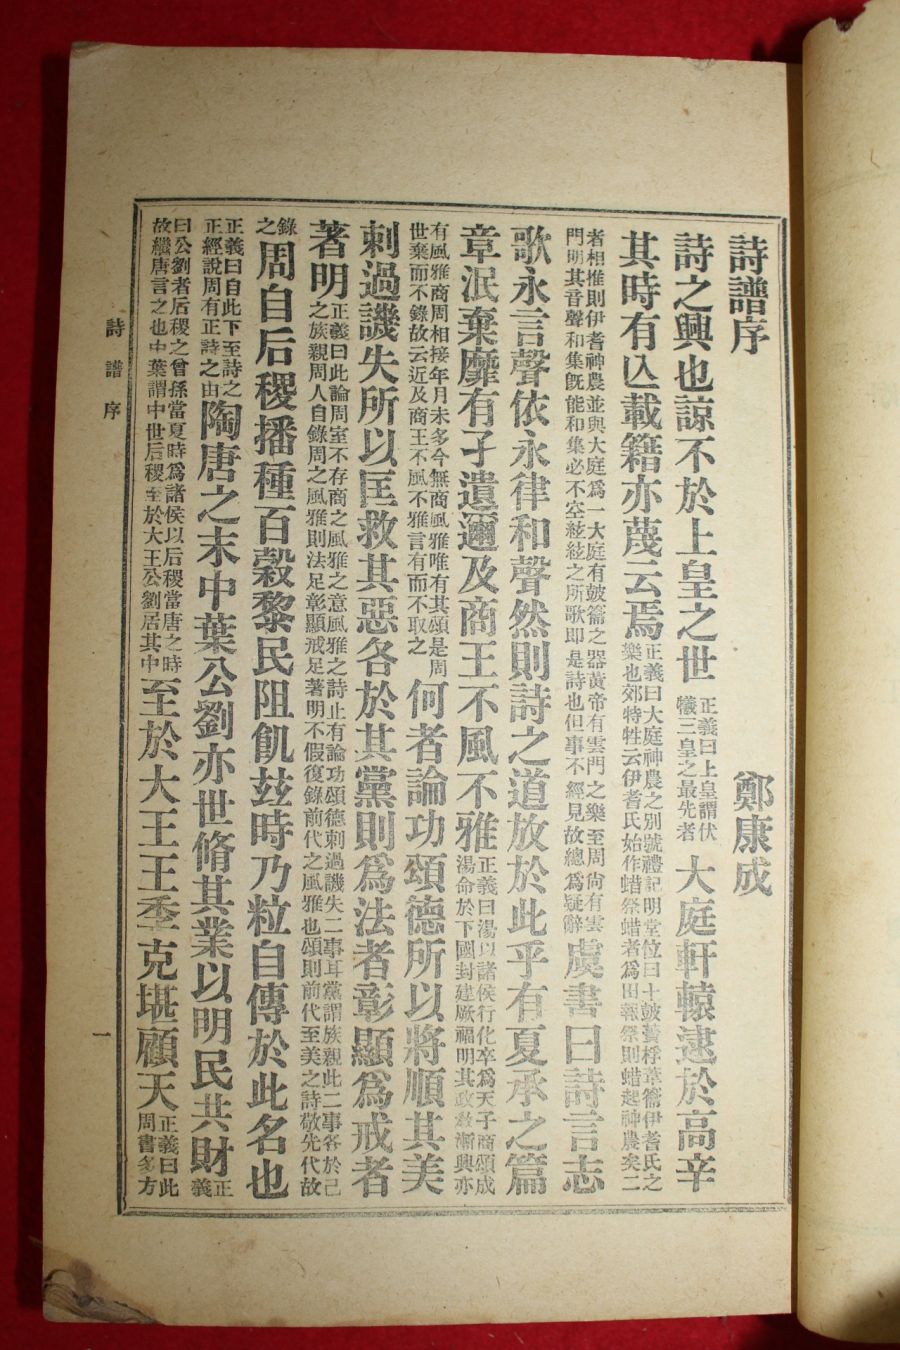 詩譜序
鄭康成
詩之興也諒不於上皇之世
正義曰上皇謂伏
犧三皇之最先者
大庭軒轅逮於高辛
其時有亾載籍亦蔑云焉
正義曰大庭神農之別號禮記明堂位曰土鼓蕢桴葦籥伊耆氏之
樂也郊特牲云伊耆氏始作蜡祭蜡者爲田報祭則蜡起神農矣二
者相推則伊耆神農並與大庭爲一大庭有鼓籥之器黃帝有雲門之樂至周尙有雲
門明其音聲和集旣能和集必不空絃絃之所歌卽是詩也但事不經見故總爲疑辭
虞書曰詩言志
歌永言聲依永律和聲然則詩之道放於此乎有夏承之篇
章泯棄靡有孑遺邇及商王不風不雅
正義曰湯以諸侯行化卒爲天子商頌成
湯命於下國封建厥福明其政敎漸興亦
有風雅商周相接年月未多今無商風雅唯有其頌是周
世棄而不錄故云近及商王不風不雅言有而不取之
何者論功頌德所以將順其美
刺過譏失所以匡救其惡各於其黨則爲法者彰顯爲戒者
著明
正義曰此論周室不存商之風雅之意風雅之詩止有論功頌德刺過譏失二事耳黨謂族親此二事各於己
之族親周人自錄周之風雅則法足彰顯戒足著明不假復錄前代之風雅也頌則前代至美之詩敬先代故
錄
之
周自后稷播種百穀黎民阻飢玆時乃粒自傳於此名也
正義曰自此下至詩之
正經說周有正詩之由
陶唐之末中葉公劉亦世脩其業以明民共財
正
義
曰公劉者后稷之曾孫當夏時爲諸侯以后稷當唐之時
故繼唐言之也中葉謂中世后稷至於大王公劉居其中
至於大王王季克堪顧天
正義曰此
周書多方
詩譜序
一